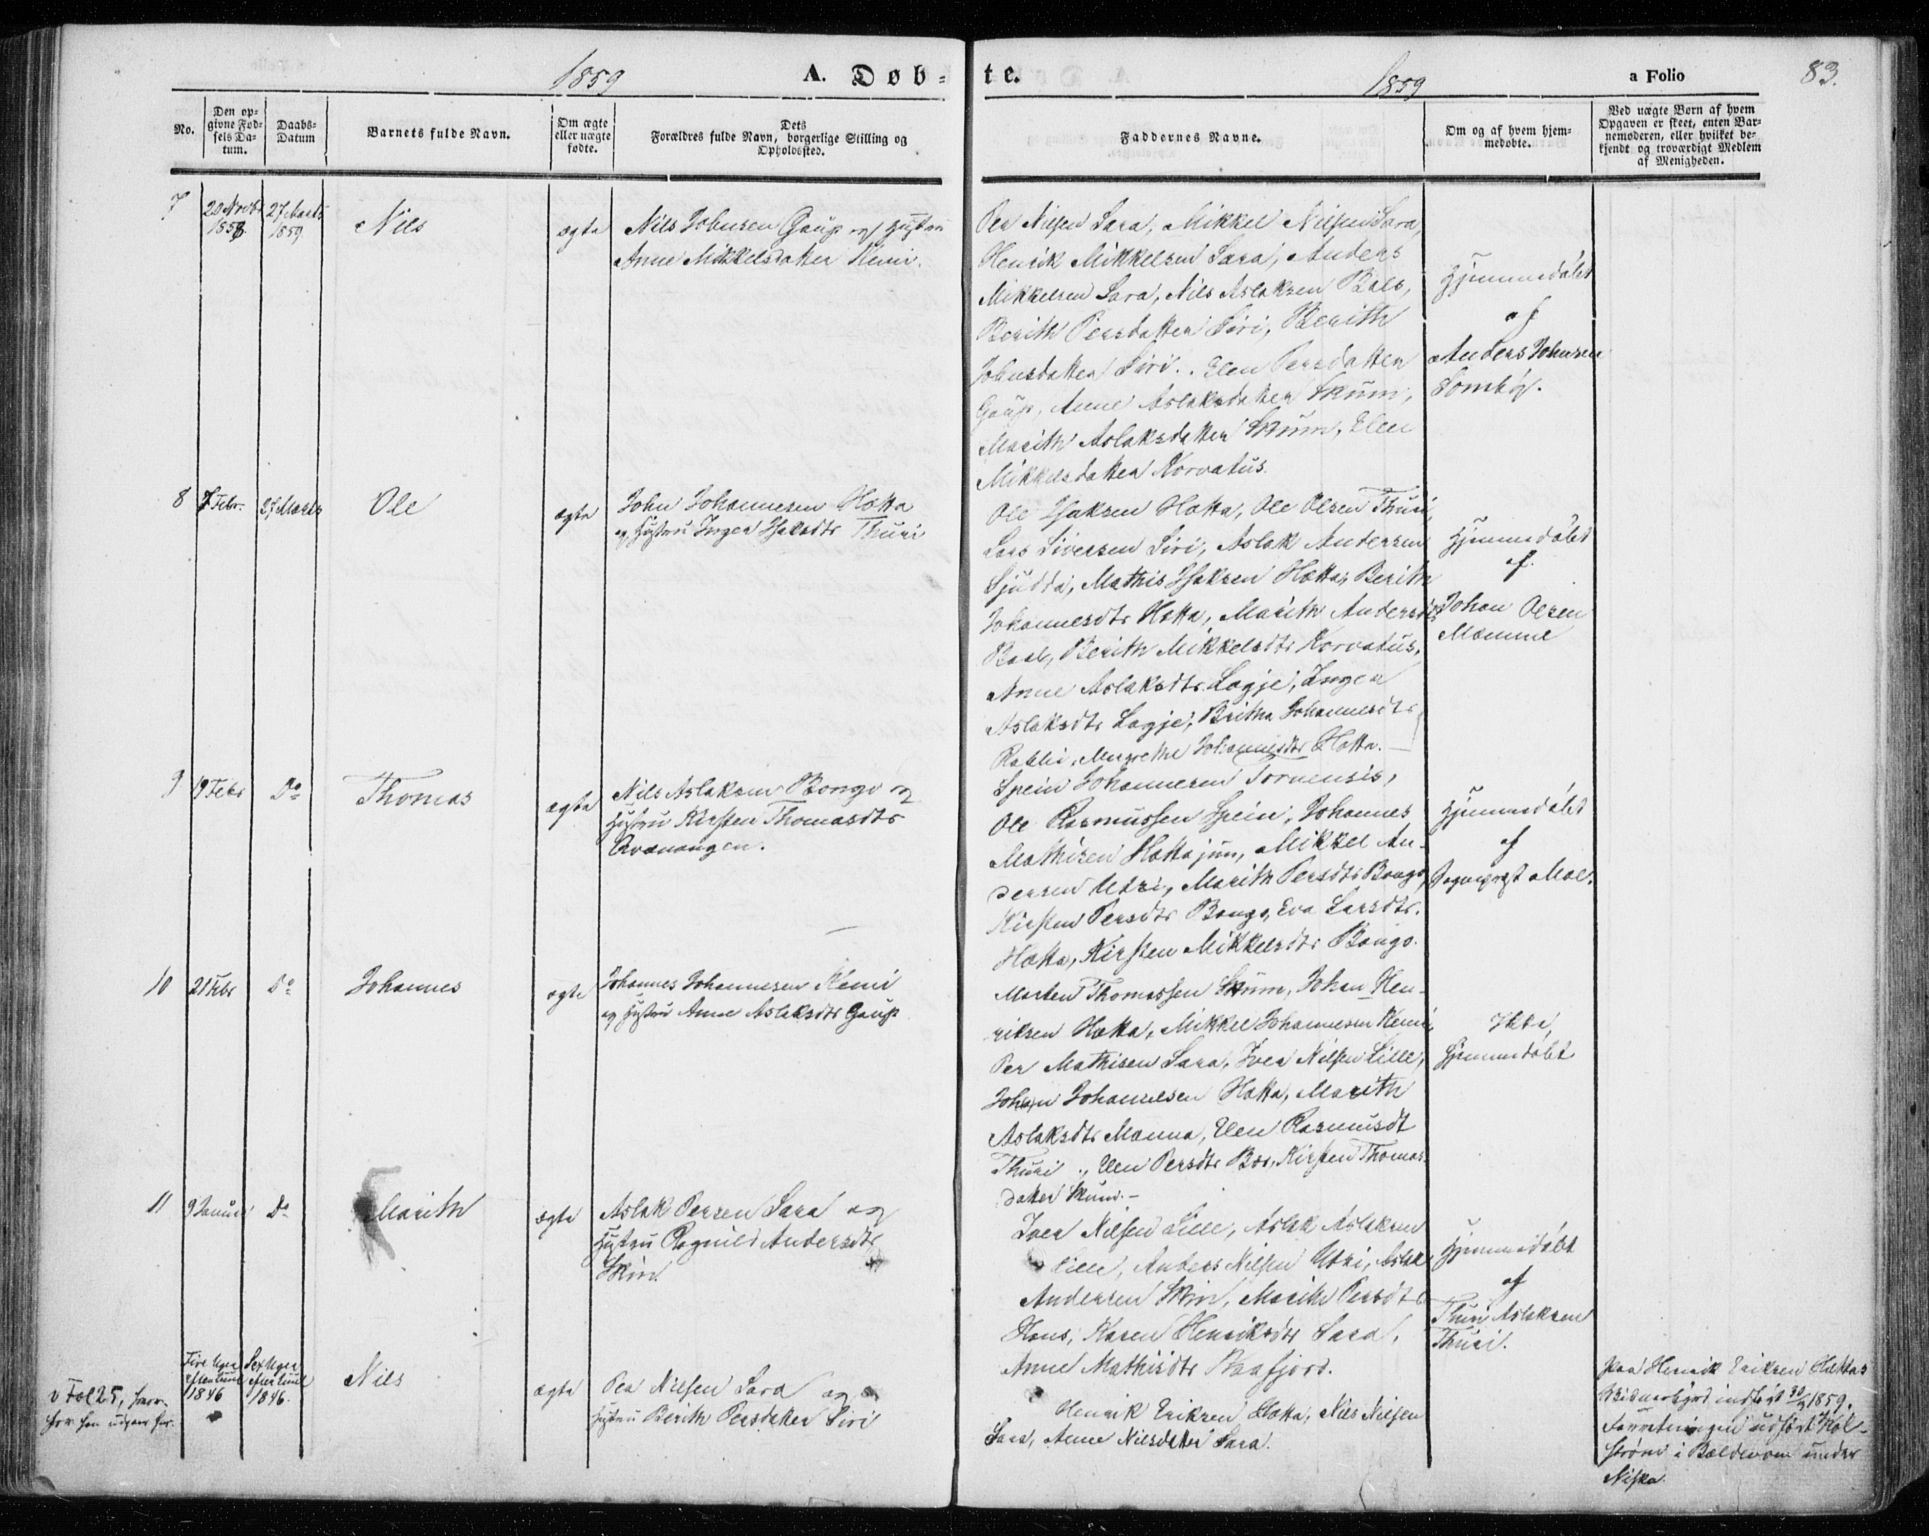 1859
A. Døb-
te.
1859
a Folio
83.
No.
Den op-
givne Fød-
sels Da-
tum.
Daabs-
Datum
Barnets fulde Navn.
Om ægte
eller uægte
fødte.
Dets
Forældres fulde Navn, borgerlige Stilling og
Opholdssted.
Faddernes Navne.
Om og af hvem hjem-
medøbte.
Ved uægte Børn af hvem
Opgaven er skeet, enten Bar-
nemoderen, eller hvilket be-
kjendt og troværdigt Medlem
af Menigheden.
7
20 Novb
1858
27 Marts
1859
Nils
ægte
Nils Johnsen Gaup og Hustru
Anne Mikkelsdatter Kemi.
Per Nilsen Sara, Mikkel Nilsen Sara,
Henrik Mikkelsen Sara, Anders
Mikkelsen Sara, Nils Aslaksen Bals,
Berith Persdatter Siri, Berith
Johnsdatter Siri. Elen Persdatter
Gaup, Anne Aslaksdatter Skum,
Marith Aslaksdatter Skum, Elen
Mikkelsdatter Korvatus.
Hjemmedøbt
af
Anders Johnsen
Somby.
8
7 Febr.
27 Marts
Ole
ægte
John Johannesen Hætta
og Hustru Inger Isaksdtr Thuri
Ole Isaksen Hætta, Ole Olsen Thuri,
Lars Siversen Siri, Aslak Andersen
Sjudda, Mathis Isaksen Hætta, Berith
Johannesdtr Hætta, Marith Andersdtr
Baal, Berith Mikkelsdtr Korvatus,
Anne Aslaksdtr Logje, Inger
Aslaksdtr Logje, Britha Johannesdtr
Rabbi, Margrethe Johannesdtr Hætta.
Hjemmedøbt
af
Johan Olsen
Mamme
9
19 Febr
Do
Thomas
ægte
Nils Aslaksen Bongo og
Hustru Kirsten Thomasdtr
Qvænangen.
Spein Johannesen Tornensis,
Ole Rasmussen Spein, Johannes
Mathisen Hætta jun, Mikkel An-
dersen Utzi, Marith Persdtr Bongo,
Kirsten Persdtr Bongo, Eva Larsdtr.
Hætta, Kirsten Mikkelsdtr Bongo.
Hjemmedøbt
af
Sognepræst Moe.
10
21 Febr
Do
Johannes
ægte
Johannes Johannesen Kemi
og Hustru Anne Aslaksdtr Gaup
Morten Thomassen Skum, Johan Hen-
riksen Hætta, Mikkel Johannesen Kemi,
Per Mathisen Sara, Iver Nilsen Lille,
Johan Johannesen Hætta, Marith
Aslaksdtr Manna, Elen Rasmusdt
Thuri, Elen Persdtr Bær, Kirsten Thomas-
datter Skum.
Ikke
Hjemmedøbt
11
9 Januar
Do
Marith
ægte
Aslak Persen Sara og
Hustru Ragnild Andersdtr
Skirr
Iver Nilsen Lille, Aslak Aslaksen
Lille, Anders Nilsen Utzi, Aslak
Andersen Skirr, Marith Persdtr
Hans, Karen Henriksdtr Sara,
Anne Mathisdtr Raafjord.
Hjemmedøbt
af
Thuri Aslaksen
Thuri.
v Fol 25,
Fire Uger
efter Juul
1846
Sex Uger
efter Juul
1846.
Nils
ægte
Per Nilsen Sara og
Hustru Berith Persdatter Siri
Henrik Eriksen Hætta, Nils Nilsen
Sara, Anne Nilsdatter Sara.
paa Henrik Eriksen Hættas
Vidnesbyrd indført 30/3 1859.
Forretningen udført Køl-
strøm i Baldevom under